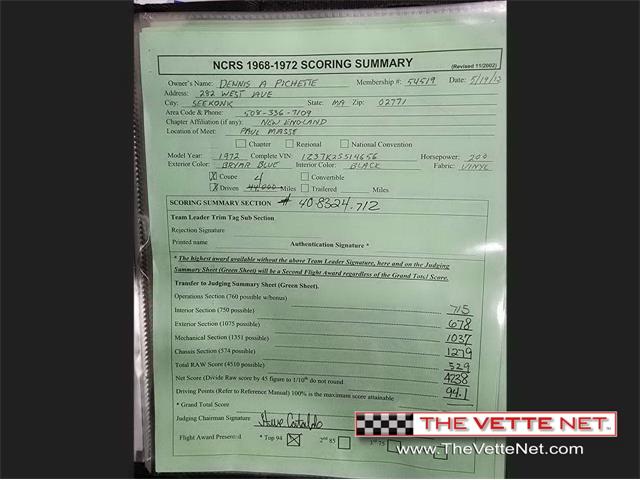 NCRS 1968-1972 SCORING SUMMARY (Revised 11/2002)
Owner's Name: DENNIS A PICHETTE Membership #: 54519 Date: 5/19/12
Address: 282 WEST AVE
City: SEEKONK State: MA Zip: 02771
Area Code & Phone: 508-336-7109
Chapter Affiliation (if any): NEW ENGLAND
Location of Meet: PAUL MASSE
Chapter Regional National Convention
Model Year: 1972 Complete VIN: 1Z37K2S514656 Horsepower: 200
Exterior Color: BRYAR BLUE Interior Color: BLACK Fabric: VINYL
Coupe 4 Convertible
Driven 44,000 Miles Trailered Miles
SCORING SUMMARY SECTION # 408324.712
Team Leader Trim Tag Sub Section
Rejection Signature
Printed name Authentication Signature *
* The highest award available without the above Team Leader Signature, here and on the Judging
Summary Sheet (Green Sheet) will be a Second Flight Award regardless of the Grand Total Score.
Transfer to Judging Summary Sheet (Green Sheet).
Operations Section (760 possible w/bonus)
Interior Section (750 possible) 715
Exterior Section (1075 possible) 678
Mechanical Section (1351 possible) 1037
Chassis Section (574 possible) 1279
Total RAW Score (4510 possible) 529
Net Score (Divide Raw score by 45 figure to 1/10th do not round 4238
Driving Points (Refer to Reference Manual) 100% is the maximum score attainable 94.1
* Grand Total Score
Judging Chairman Signature
Flight Award Presented * Top 94 2nd 85 3rd 75
THE VETTE NET.
www.TheVetteNet.com